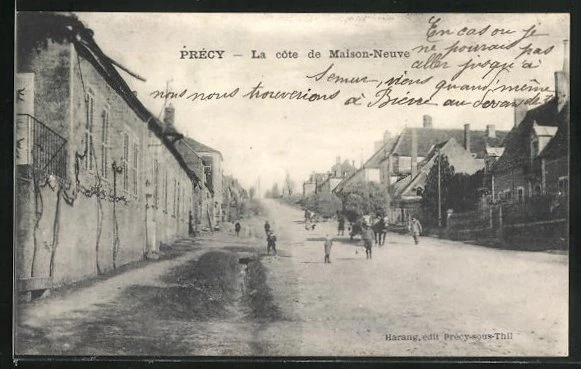 PRÉCY — La côte de Maison-Neuve
En cas où je
ne pourrais pas
aller jusqu'à
Semur, viens quand même
nous nous trouverions à Bierre au devant
Harang, edit Précy-sous-Thil